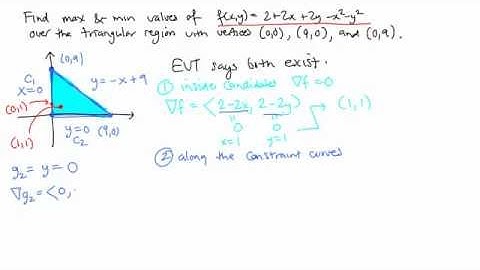 Find max & min values of f(x,y) = 2+2x+2y-x²-y²
over the triangular region with vertices (0,0), (9,0), and (0,9).
(0,9)
C₁
x=0
y=-x+9
(0,1)
(1,1)
y=0
C₂
(9,0)
EVT says both exist.
① inside candidates ∇f=0
∇f = <2-2x, 2-2y>
" "
0 0
x=1 y=1
(1,1)
② along the constraint curves
g₂ = y = 0
∇g₂ = <0,